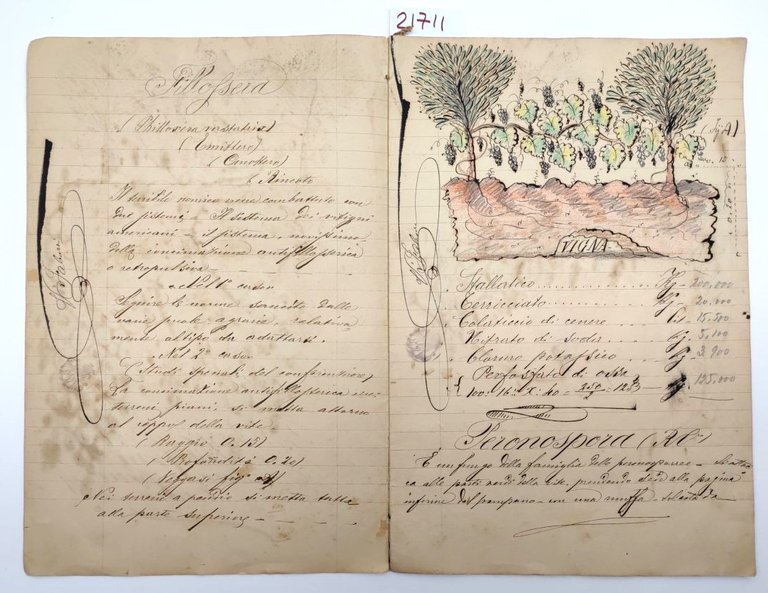 21711
Fillossera
(Phillossera vastatrix)
(Emittero)
(Omottero)
(Rincoto
Il terribile nemico viene combattuto con
due sistemi - Il sistema dei vitigni
americani - il sistema, novissimo
della concimazione antifillosserica
o repulsiva
Nel 1° caso
Seguire le norme sancite dalle
varie agrarie, relativa
mente al tipo da adottarsi.
Nel 2° caso
(Studi speciali del conferenziere)
La concimazione antifillosserica nei
terreni piani, si mette attorno
al ceppo della vite
(Raggio 0.15)
(Profondità 0.20)
(Veggasi fig.
Nei terreni a pendio si mette tutta
alla parte superiore
(Fig A)
VIGNA
Stallatico Kg 200,000
Terricciato Kg 20.000
Colaticcio di cenere 15.500
Nitrato di soda Kg. 5,100
Cloruro potassico Kg 3.900
Perfosfato di ossa
100: 16 :: X: 40 = 250/2 = 125 Kg 125,000
Peronospora
È un fungo della famiglia delle peronosporee - che attac
ca alle parti verdi della vite, prendendo sede alla pagina
inferiore del pampano - con una muffa